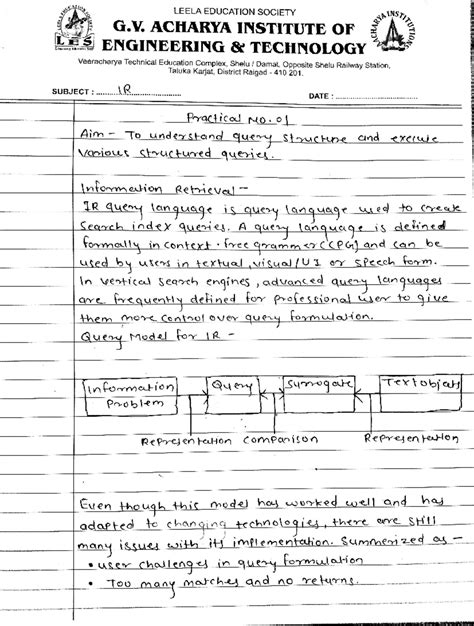 LEELA EDUCATION SOCIETY
G.V. ACHARYA INSTITUTE OF
ENGINEERING & TECHNOLOGY
LES
ACHARYA INSTITUTIONS
Veeracherya Technical Education Complex, Shelu / Damat, Opposite Shelu Railway Station,
Taluka Karjat, District Raigad - 410 201.
SUBJECT : IR
DATE :
Practical No. 01
Aim - To understand query structure and execute
various structured queries.
Information Retrieval -
IR query language is query language used to create
search index queries. A query language is defined
formally in context-free grammer (CPG) and can be
used by users in textual, visual/UI or speech form.
In vertical search engines, advanced query languages
are frequently defined for professional user to give
them more control over query formulation.
Query Model for IR -
Information Problem
Query
Surrogate
Text objects
Representation Comparison Representation
Even though this model has worked well and has
adapted to changing technologies, there are still
many issues with its implementation. Summerized as -
• user challenges in query formulation
• Too many matches and no returns.